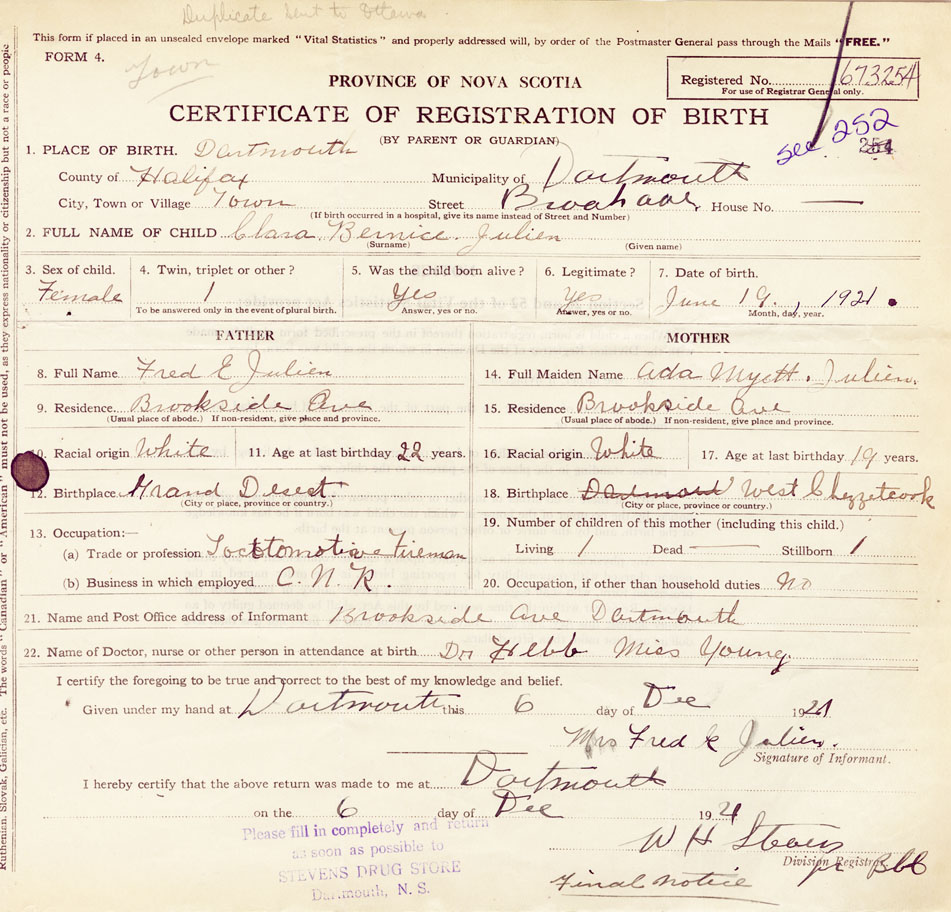 Duplicate sent to Ottawa
This form if placed in an unsealed envelope marked "Vital Statistics" and properly addressed will, by order of the Postmaster General pass through the Mails "FREE."
FORM 4.
Town
PROVINCE OF NOVA SCOTIA
Registered No. 673254
For use of Registrar General only.
CERTIFICATE OF REGISTRATION OF BIRTH
(BY PARENT OR GUARDIAN)
see 252
254
1. PLACE OF BIRTH. Dartmouth
County of Halifax Municipality of Dartmouth
City, Town or Village Town Street House No. —
(If birth occurred in a hospital, give its name instead of Street and Number)
2. FULL NAME OF CHILD Clara Bernice Julien
(Surname) (Given name)
3. Sex of child. 4. Twin, triplet or other? 5. Was the child born alive? 6. Legitimate? 7. Date of birth.
Female 1 Yes Yes June 19, 1921.
To be answered only in the event of plural birth. Answer, yes or no. Answer, yes or no. Month, day, year.
FATHER MOTHER
8. Full Name Fred E Julien 14. Full Maiden Name Ada Myett. Julien.
9. Residence Brookside Ave 15. Residence Brookside Ave
(Usual place of abode.) If non-resident, give place and province. (Usual place of abode.) If non-resident, give place and province.
10. Racial origin White 11. Age at last birthday 22 years. 16. Racial origin White 17. Age at last birthday 19 years.
12. Birthplace Grand Desert. 18. Birthplace West Chezzetcook
(City or place, province or country.) (City or place, province or country.)
13. Occupation:— 19. Number of children of this mother (including this child.)
(a) Trade or profession Locotomotive Fireman Living 1 Dead — Stillborn 1
(b) Business in which employed C. N. R. 20. Occupation, if other than household duties No
21. Name and Post Office address of Informant Brookside Ave Dartmouth
22. Name of Doctor, nurse or other person in attendance at birth Dr Hebb Miss Young.
I certify the foregoing to be true and correct to the best of my knowledge and belief.
Given under my hand at Dartmouth this 6 day of Dec 1921
Mrs Fred E Julien.
Signature of Informant.
I hereby certify that the above return was made to me at Dartmouth
on the 6 day of Dec 1921
W H Stevens
Division Registrar.
per Bbb
Please fill in completely and return
as soon as possible to
STEVENS DRUG STORE
Dartmouth, N. S.
Final notice
Ruthenian, Slovak, Galician, etc. The words "Canadian" or "American" must not be used, as they express nationality or citizenship but not a race or people